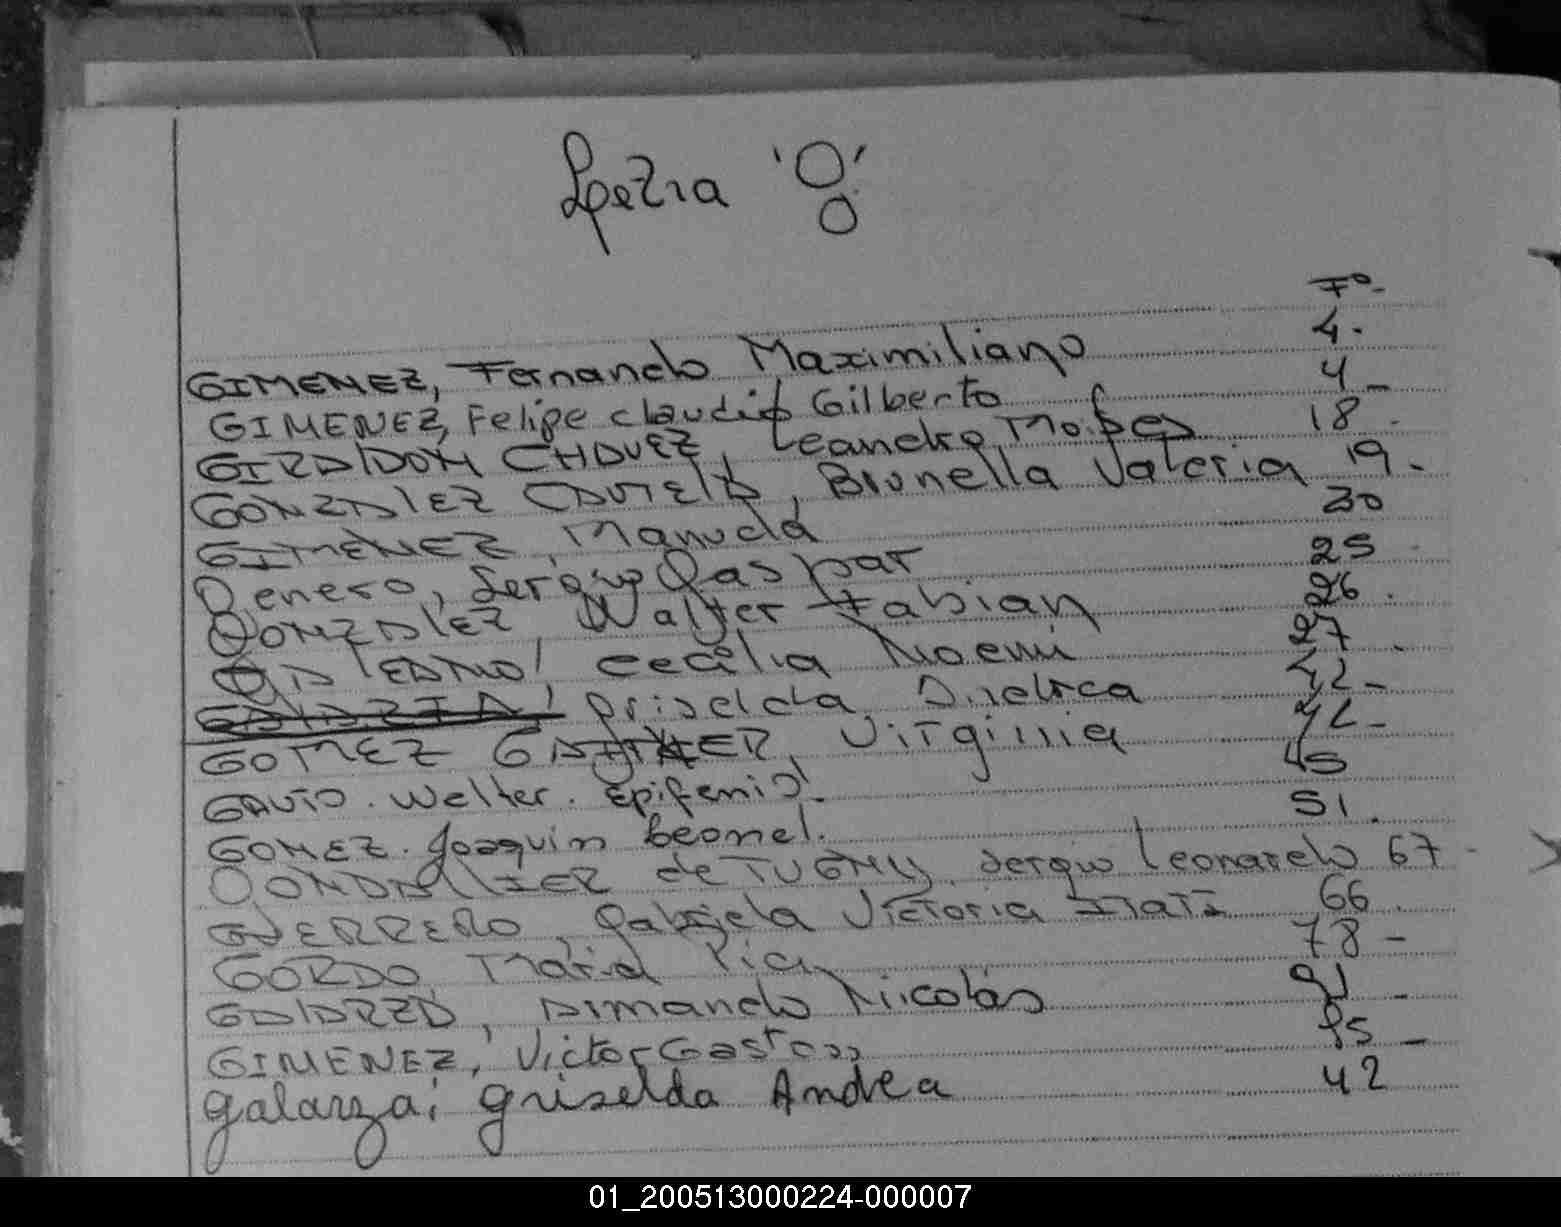 Letra 'G'
Fº-
GIMENEZ, Fernando Maximiliano 4.
GIMENEZ, Felipe Claudio Gilberto 4-
GIRALDON CHAVEZ, Leandro Moises 18.
GONZALEZ, Brunella Valeria 19.
GIMENEZ, Manuela 20
Genero, Sergio Gaspar 25
GONZALEZ, Walter Fabian 26.
GALEANO, Cecilia Noemi 27.
Griselda Andrea 42-
GOMEZ, Virginia 42-
GAUTO. Walter. Epifanio. 45
GOMEZ. Joaquin Leonel. 51.
de TUGNY, Sergio Leonardo 67-
GUERRERO, Gabriela Victoria Itatí 66.
GORDO, María Pia 78-
GALARZA, Armando Nicolás 91-
GIMENEZ, Victor Gaston 95-
Galarza, Griselda Andrea 42
01_200513000224-000007